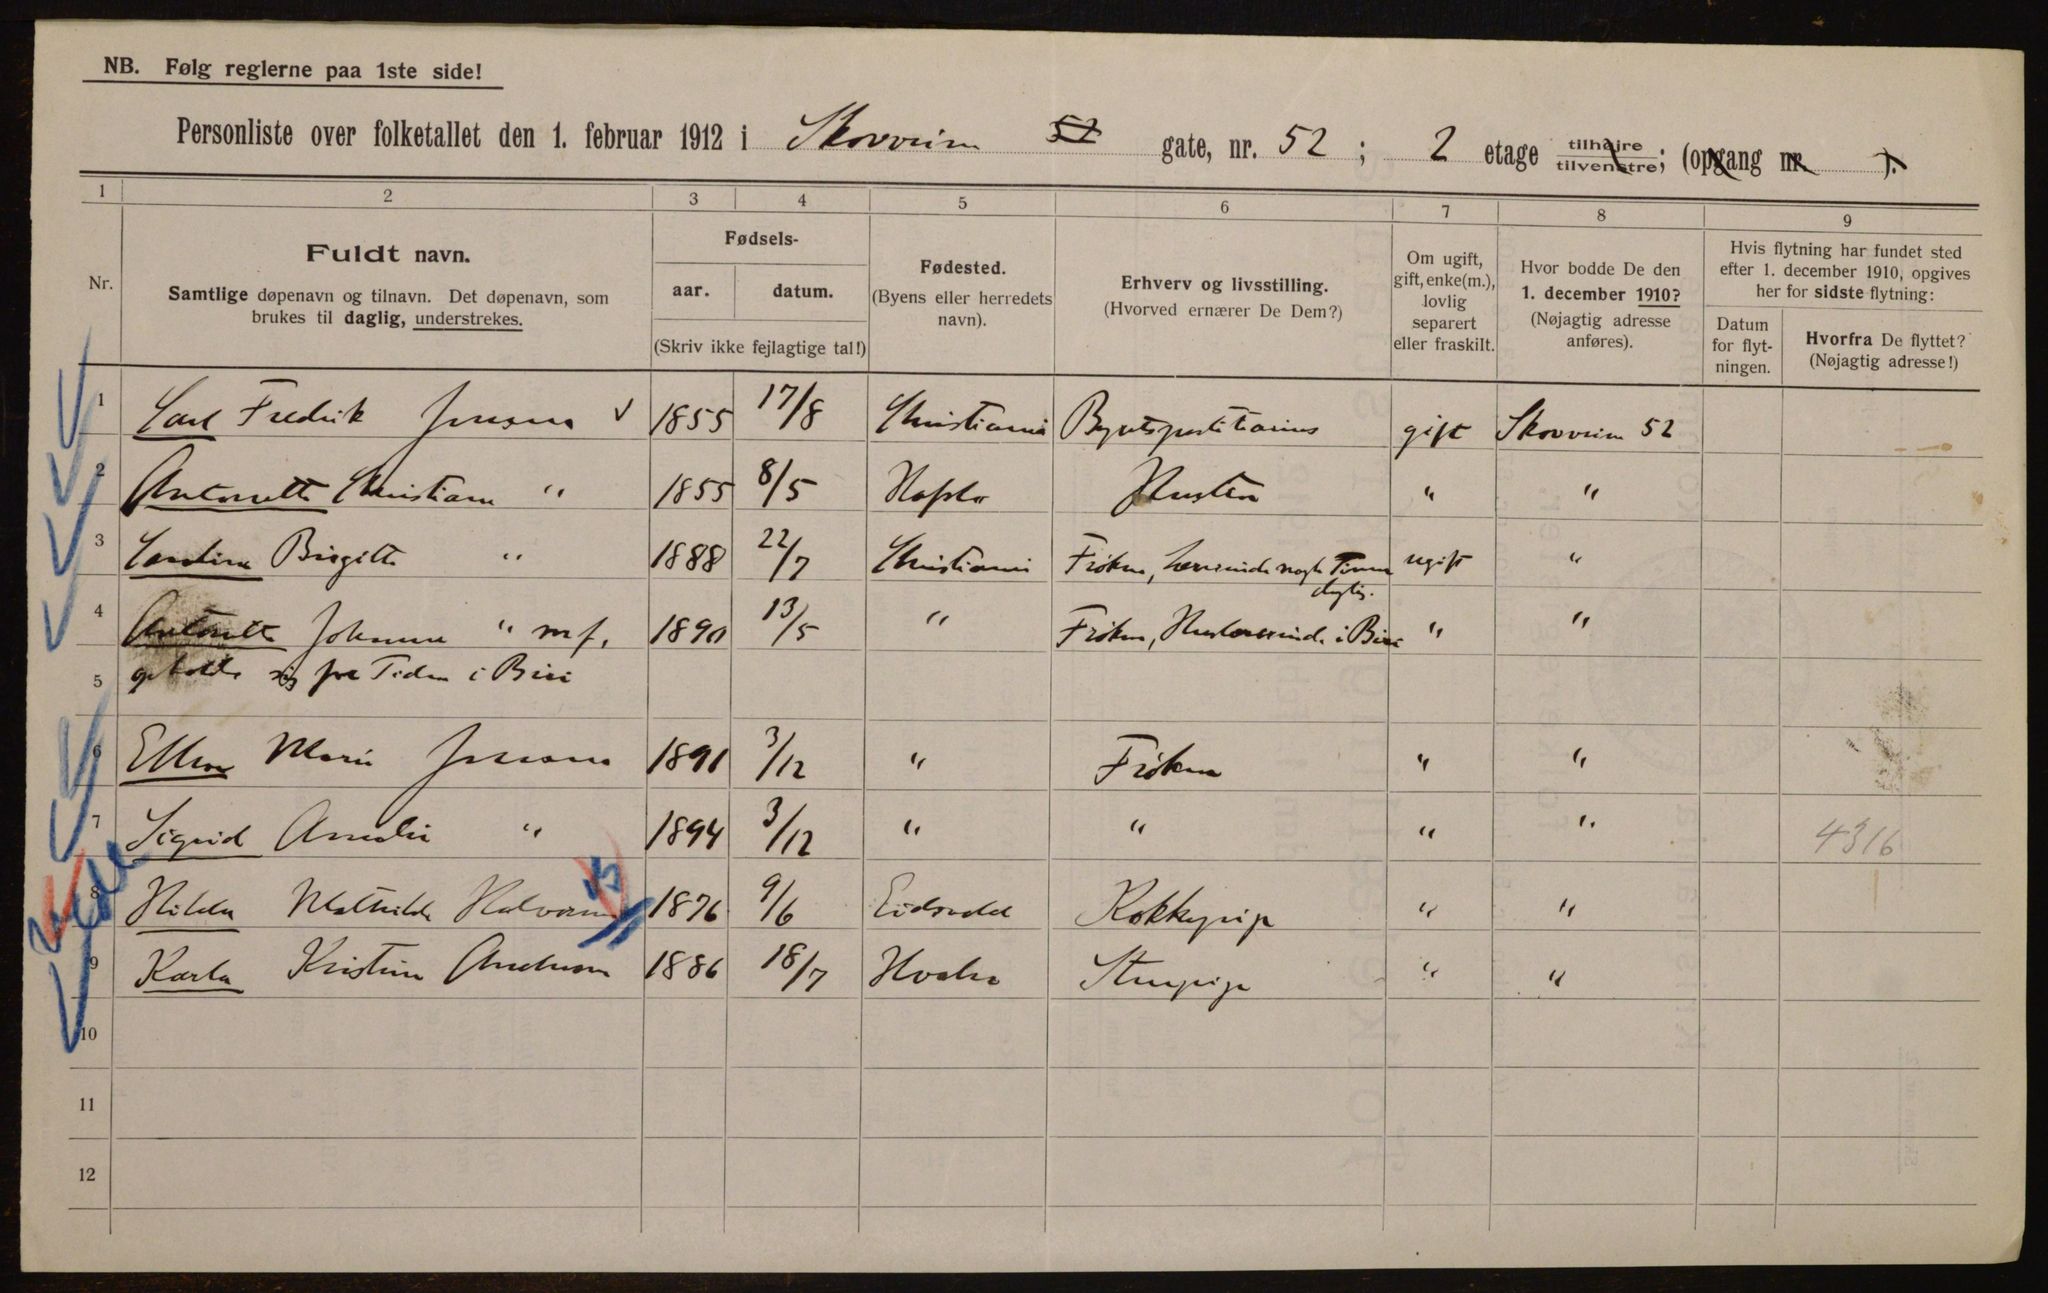 NB. Følg reglerne paa 1ste side!
Personliste over folketallet den 1. februar 1912 i Skovveien 52 gate, nr. 52 ; 2 etage tilhøjre tilvenstre; (opgang nr. ).
1 2 3 4 5 6 7 8 9
Nr.
Fuldt navn.
Samtlige døpenavn og tilnavn. Det døpenavn, som
brukes til daglig, understrekes.
Fødsels-
aar. datum.
(Skriv ikke fejlagtige tal!)
Fødested.
(Byens eller herredets
navn).
Erhverv og livsstilling.
(Hvorved ernærer De Dem?)
Om ugift,
gift, enke(m.),
lovlig
separert
eller fraskilt.
Hvor bodde De den
1. december 1910?
(Nøjagtig adresse
anføres).
Hvis flytning har fundet sted
efter 1. december 1910, opgives
her for sidste flytning:
Datum
for flyt-
ningen.
Hvorfra De flyttet?
(Nøjagtig adresse!)
1 Carl Fredrik 1855 17/8 Christiania gift Skovveien 52
2 Antonette Christiane " 1855 8/5 Hafslo Hustru " "
3 Birgitte " 1888 22/7 Christiania Frøken, Lærerinde nogle Timer ugift "
daglig.
4 Antonette Johanne " m.f. 1890 13/5 " Frøken, Huslærerinde i Biri " "
5 opholder sig for Tiden i Biri
6 Ellen Marie 1891 3/12 " Frøken " "
7 Sigrid Amalie " 1894 3/12 " " " " 4316
8 Hilda Mathilde Halvorsen 1876 9/6 Eidsvold Kokkepige " "
9 Karla Kristine Andersen 1886 18/7 Hvaler Stuepige " "
10
11
12